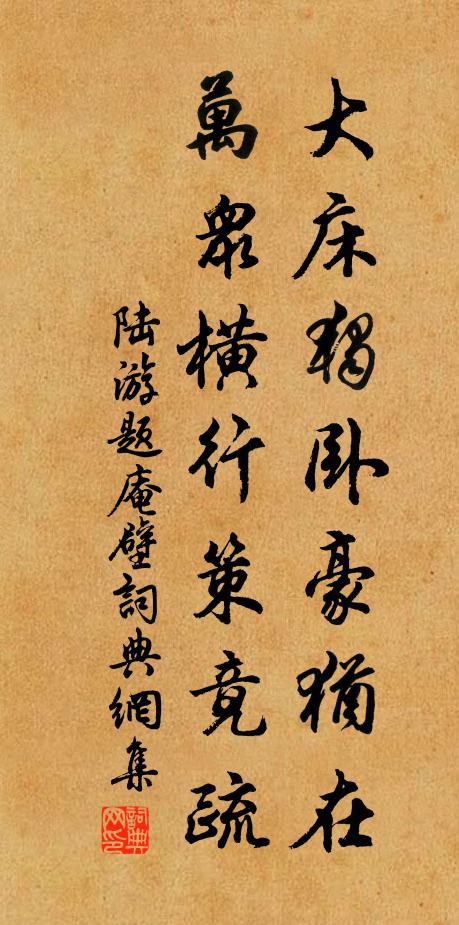 大床獨卧豪猶在
萬眾橫行策竟疏
陆游题庵壁詞典網集
詞典网印